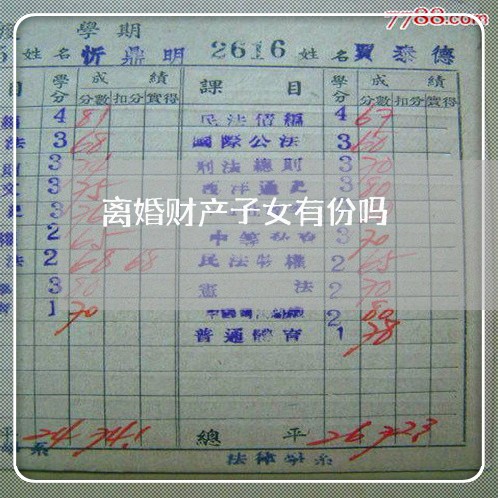 7788.com
學期
姓名 忻鼎明 2616 姓名 賈泰德
目 學分 成績 課目 學分 成績
分數 扣分 實得 分數 扣分 實得
4 81 民法債編 4 67
法 3 68 國際公法 3 60
3 刑法總則 3 70
文 3 75 西洋通史 3 80
离婚财产子女有份吗
2 65 3 70
法 2 68 68 民法物權 2 65
3 80 憲法 2 70
1 70 2 80
普通體育 1 78
平 24 74.1 總平 26 72.3
系 法律學系